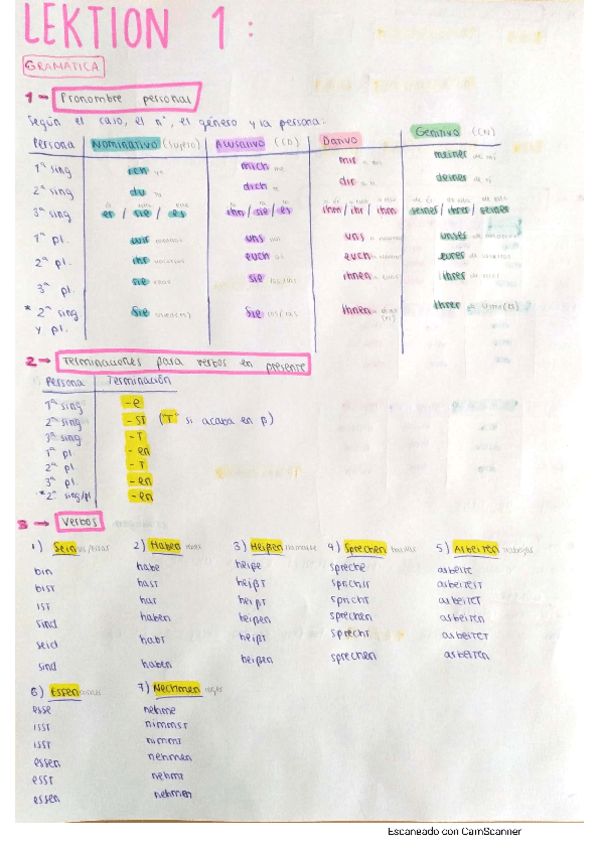 LEKTION 1:
GRAMATICA
1→ Pronombre personal
Según el caso, el nº, el género y la persona..
Persona Nominativo (sujeto) Akusativo (CD) Dativo Genitivo (CN)
1ª sing ich yo mich me mir a mí meiner de mí
2ª sing du tú dich te dir a ti deiner de ti
3ª sing er / sie / es ihn / sie / es ihm / ihr / ihm seines / ihrer / seines
1ª pl. wir nosotros uns nos uns unses
2ª pl. ihr vosotros euch os euch eurer
3ª pl. sie ellos sie los/las ihnen ihres
* 2ª sing Sie Sie los/las Ihnen Ihrer
y pl.
2→ Terminaciones para verbos en presente
Persona Terminación
1ª sing -e
2ª sing -st ("T" si acaba en β)
3ª sing -T
1ª pl -en
2ª pl -T
3ª pl. -en
*2ª sing/pl -en
3→ Verbos
1) Sein 2) Haben 3) Heiβen 4) Sprechen 5) Arbeiten trabajar
bin habe heiβe spreche arbeite
bist hast heiβt sprichst arbeitest
ist hat heiβt spricht arbeitet
sind haben heiβen sprechen arbeiten
seid habt heiβt sprecht arbeitet
sind haben heiβen sprechen arbeiten
6) Essen 7) Nechmen
esse nehme
isst nimmst
isst nimmt
essen nehmen
esst nehmt
essen nehmen
Escaneado con CamScanner